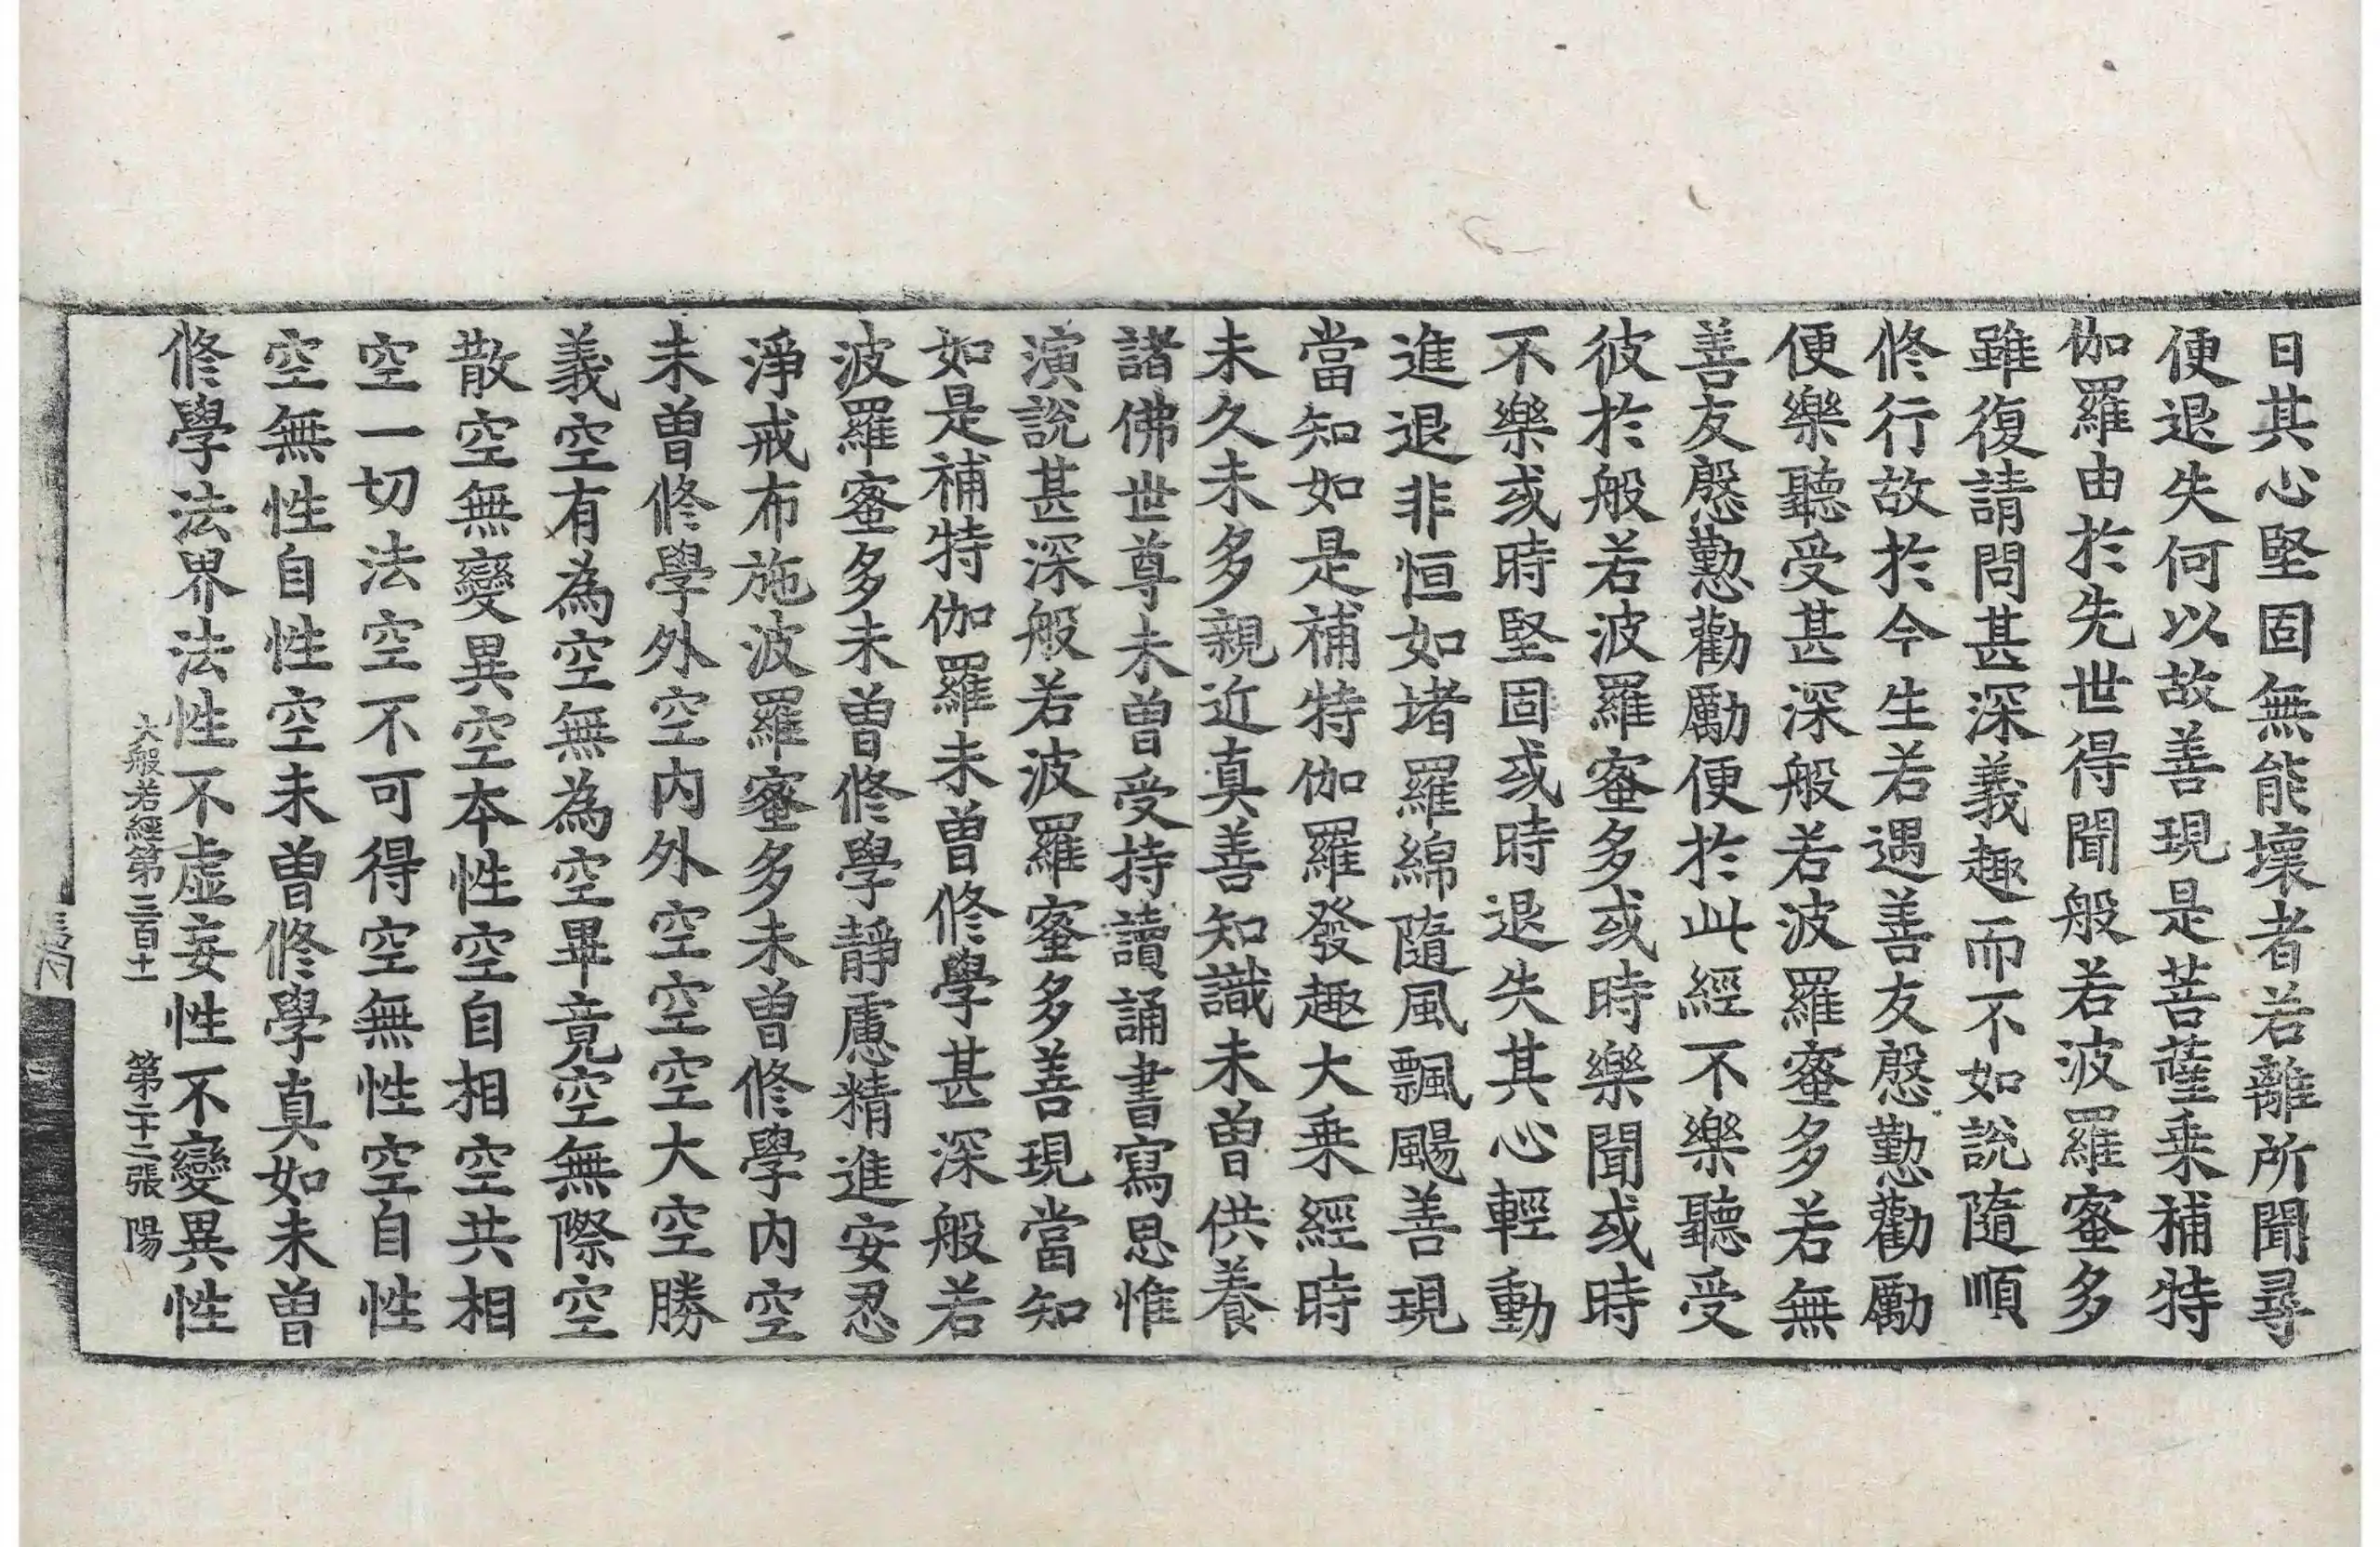 日其心堅固無能壞者若離所聞尋
便退失何以故善現是菩薩乘補特
伽羅由於先世得聞般若波羅蜜多
雖復請問甚深義趣而不如說隨順
修行故於今生若遇善友慇懃勸勵
便樂聽受甚深般若波羅蜜多若無
善友慇懃勸勵便於此經不樂聽受
彼於般若波羅蜜多或時樂聞或時
不樂或時堅固或時退失其心輕動
進退非恒如堵羅綿隨風飄颺善現
當知如是補特伽羅發趣大乘經時
未久未多親近真善知識未曾供養
諸佛世尊未曾受持讀誦書寫思惟
演說甚深般若波羅蜜多善現當知
如是補特伽羅未曾修學甚深般若
波羅蜜多未曾修學靜慮精進安忍
淨戒布施波羅蜜多未曾修學內空
未曾修學外空內外空空空大空勝
義空有為空無為空畢竟空無際空
散空無變異空本性空自相空共相
空一切法空不可得空無性空自性
空無性自性空未曾修學真如未曾
修學法界法性不虛妄性不變異性
大般若經第三百十一 第二十二張 陽